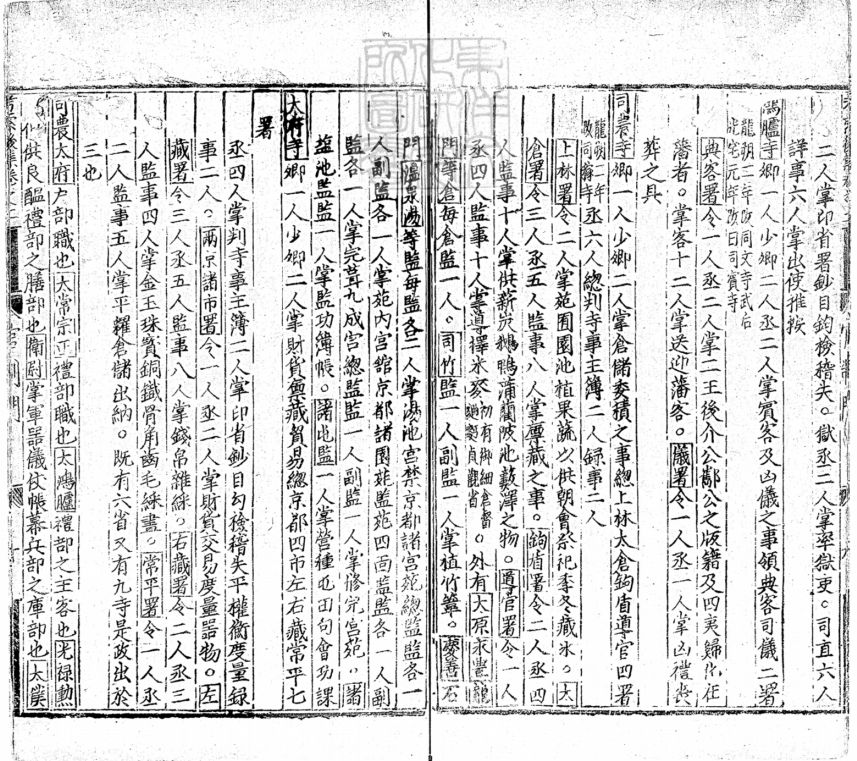 二人掌印省署鈔目鈎檢稽失。獄丞二人掌率獄吏。司直六人
評事六人掌出使推按
鴻臚寺卿一人少卿二人丞二人掌賓客及凶儀之事領典客司儀二署
龍朔二年改同文寺武后
光宅元年改曰司賓寺
典客署令一人丞二人掌二王後介公酅公之版籍及四夷歸化在
藩者。掌客十二人掌送迎藩客。儀署令一人丞一人掌凶禮喪
葬之具
司農寺卿一人少卿二人掌倉儲委積之事總上林太倉鈎盾導官四署
龍朔二年
改司稼寺
丞六人總判寺事主簿二人錄事二人
上林署令二人掌苑囿園池植果蔬以供朝會祭祀季冬藏氷。太
倉署令三人丞五人監事八人掌廩藏之事。鈎盾署令二人丞四
人監事十人掌供薪炭鵝鴨蒲藺陂池藪澤之物。導官署令一人
丞四人監事十人掌導擇米麥
初有御細倉督
貞觀省
。外有太原永豐龍
門等倉每倉監一人。司竹監一人副監一人掌植竹葦。慶善石
門溫泉湯等監每監各一人掌湯池宮禁京都諸宮苑總監監各一
人副監各一人掌苑內宮館京都諸園苑監苑四面監監各一人副
監各一人掌完葺九成宮總監監一人副監一人掌修完宮苑。諸
鹽池監監一人掌監功簿帳。諸屯監一人掌營種屯田句會功課
太府寺卿一人少卿二人掌財貨廩藏貿易總京都四市左右藏常平七
署
丞四人掌判寺事主簿二人掌印省鈔目勾檢稽失平權衡度量錄
事二人。兩京諸市署令一人丞二人掌財貨交易度量器物。左
藏署令三人丞五人監事八人掌錢帛雜綵。右藏署令二人丞三
人監事四人掌金玉珠寶銅鐵骨角齒毛綵畫。常平署令一人丞
二人監事五人掌平糴倉儲出納。既有六省又有九寺是政出於
三也
司農太府戶部職也太常宗正禮部職也太鴻臚禮部之主客也光祿勲
供良醞禮部之膳部也衛尉掌軍器儀仗帳幕兵部之庫部也太僕